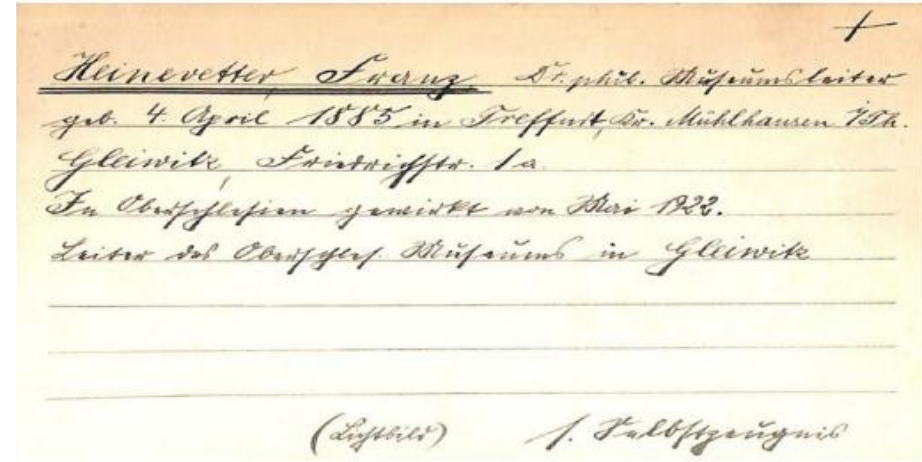 +
Heinevetter, Franz, Dr. phil. Museumsleiter
geb. 4. April 1885 in Treffurt, Kr. Mühlhausen i/Th.
Gleiwitz, Friedrichstr. 1a.
In Oberschlesien gewirkt von Mai 1922.
Leiter des Oberschles. Museums in Gleiwitz
(Lichtbild) s. Selbstzeugnis